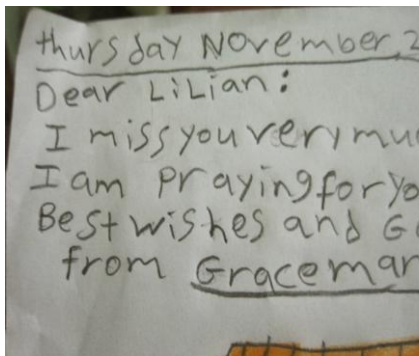 thursday November, 2
Dear LiLian:
I miss you very mu
I am Praying for yo
Best wishes and G
from Gracemar